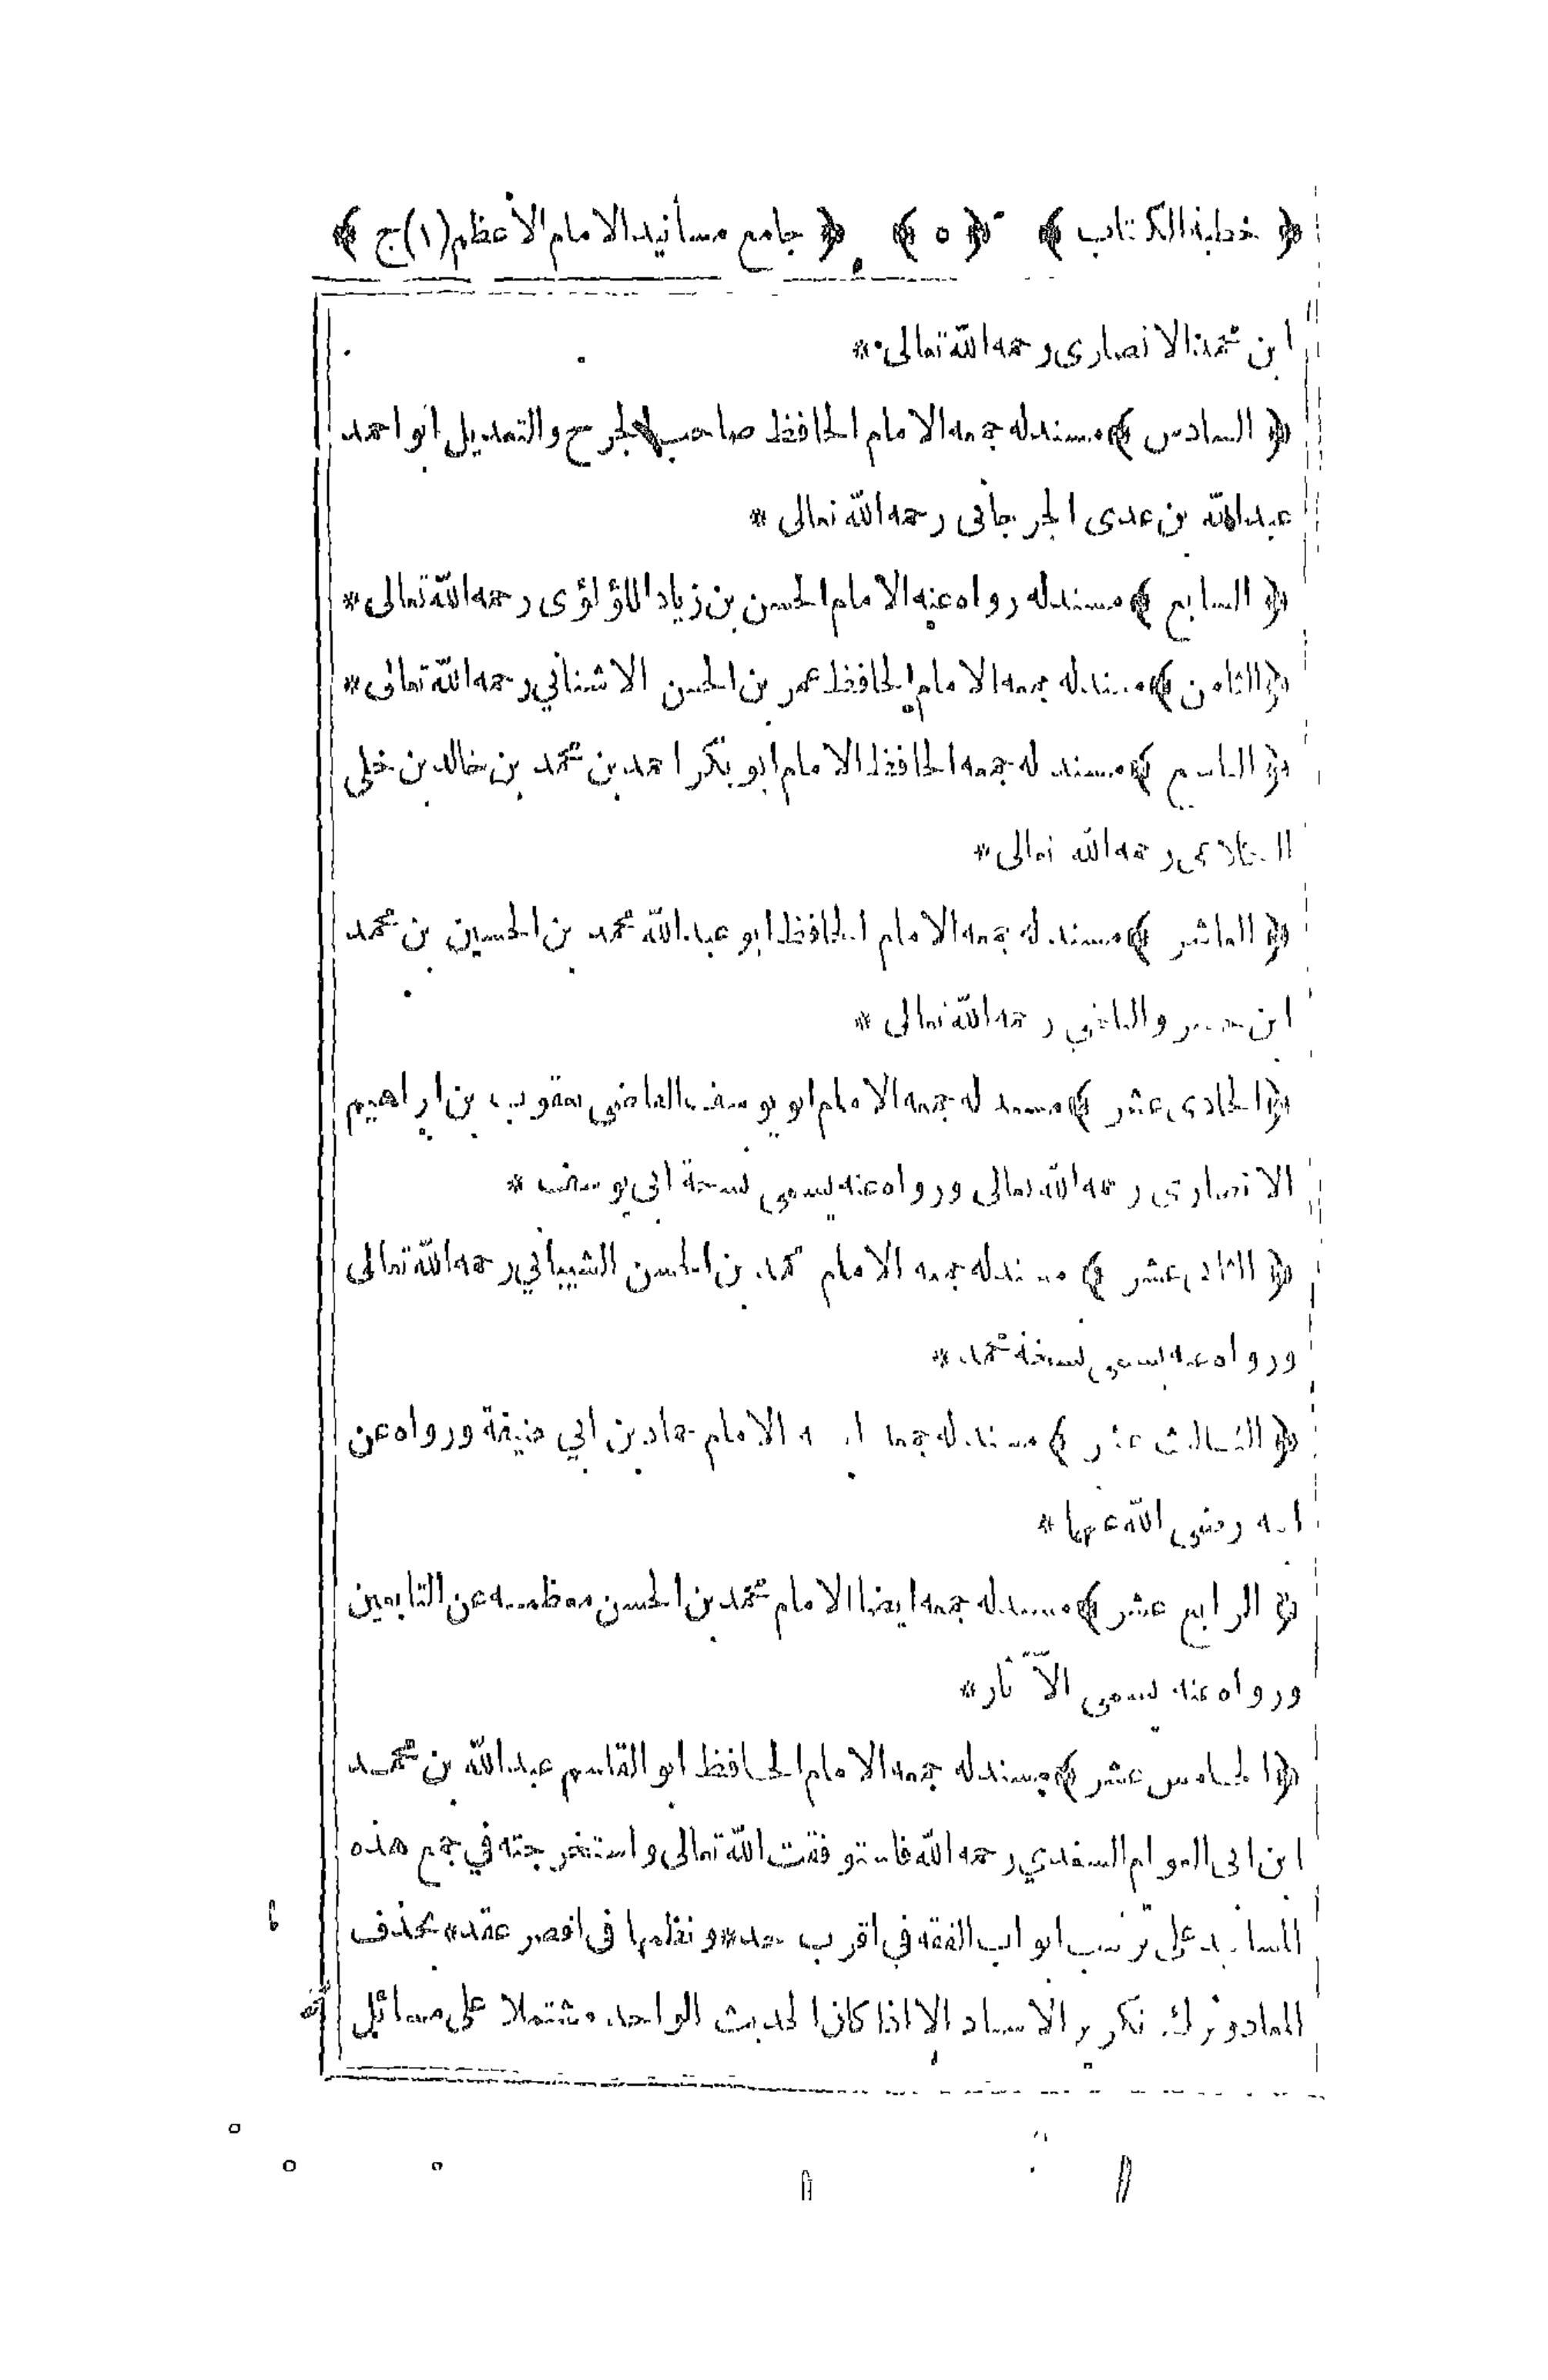 ﴿ خطبة الكتاب ﴾ ﴿ ٥ ﴾ ﴿ جامع مسانيد الامام الأعظم (١) ج ﴾
ابن محمد الانصارى رحمه الله تعالى *
﴿ السادس ﴾ مسند له جمعه الامام الحافظ صاحب الجرح والتعديل ابو احمد
عبد الله بن عدى الجرجانى رحمه الله تعالى *
﴿ السابع ﴾ مسند له رواه عنه الامام الحسن بن زياد اللؤلؤى رحمه الله تعالى *
﴿ الثامن ﴾ مسند له جمعه الامام الحافظ عمر بن الحسن الاشنانى رحمه الله تعالى *
﴿ التاسع ﴾ مسند له جمعه الحافظ الامام ابو بكر احمد بن محمد بن خالد بن خلى
الكلاعى رحمه الله تعالى *
﴿ العاشر ﴾ مسند له جمعه الامام الحافظ ابو عبد الله محمد بن الحسين بن محمد
ابن خسرو البلخى رحمه الله تعالى *
﴿ الحادى عشر ﴾ مسند له جمعه الامام ابو يوسف القاضى يعقوب بن ابراهيم
الانصارى رحمه الله تعالى ورواه عنه يسمى نسخة ابى يوسف *
﴿ الثانى عشر ﴾ مسند له جمعه الامام محمد بن الحسن الشيبانى رحمه الله تعالى
ورواه عنه يسمى نسخة محمد *
﴿ الثالث عشر ﴾ مسند له جمعه ابنه الامام حماد بن ابي حنيفة ورواه عن
ابيه رضى الله عنهما *
﴿ الرابع عشر ﴾ مسند له جمعه ايضا الامام محمد بن الحسن معظمه عن التابعين
ورواه عنه يسمى الآثار *
﴿ الخامس عشر ﴾ مسند له جمعه الامام الحافظ ابو القاسم عبد الله بن محمد
ابن ابى العوام السغدي رحمه الله فاستوفقت الله تعالى واستخرجته في جمع هذه
المسانيد على ترتيب ابواب الفقه في اقرب حد * ونظمها فى اقصر عقد * بحذف
المعاد وترك تكرير الاسناد الا اذا كان الحديث الواحد مشتملا على مسائل